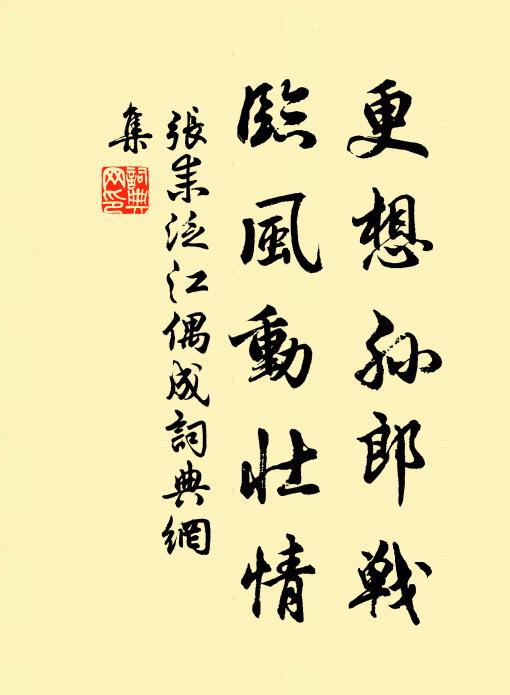 更想孙郎戰
臨風動壯情
張耒泛江偶成詞典網
集
詞典
网印